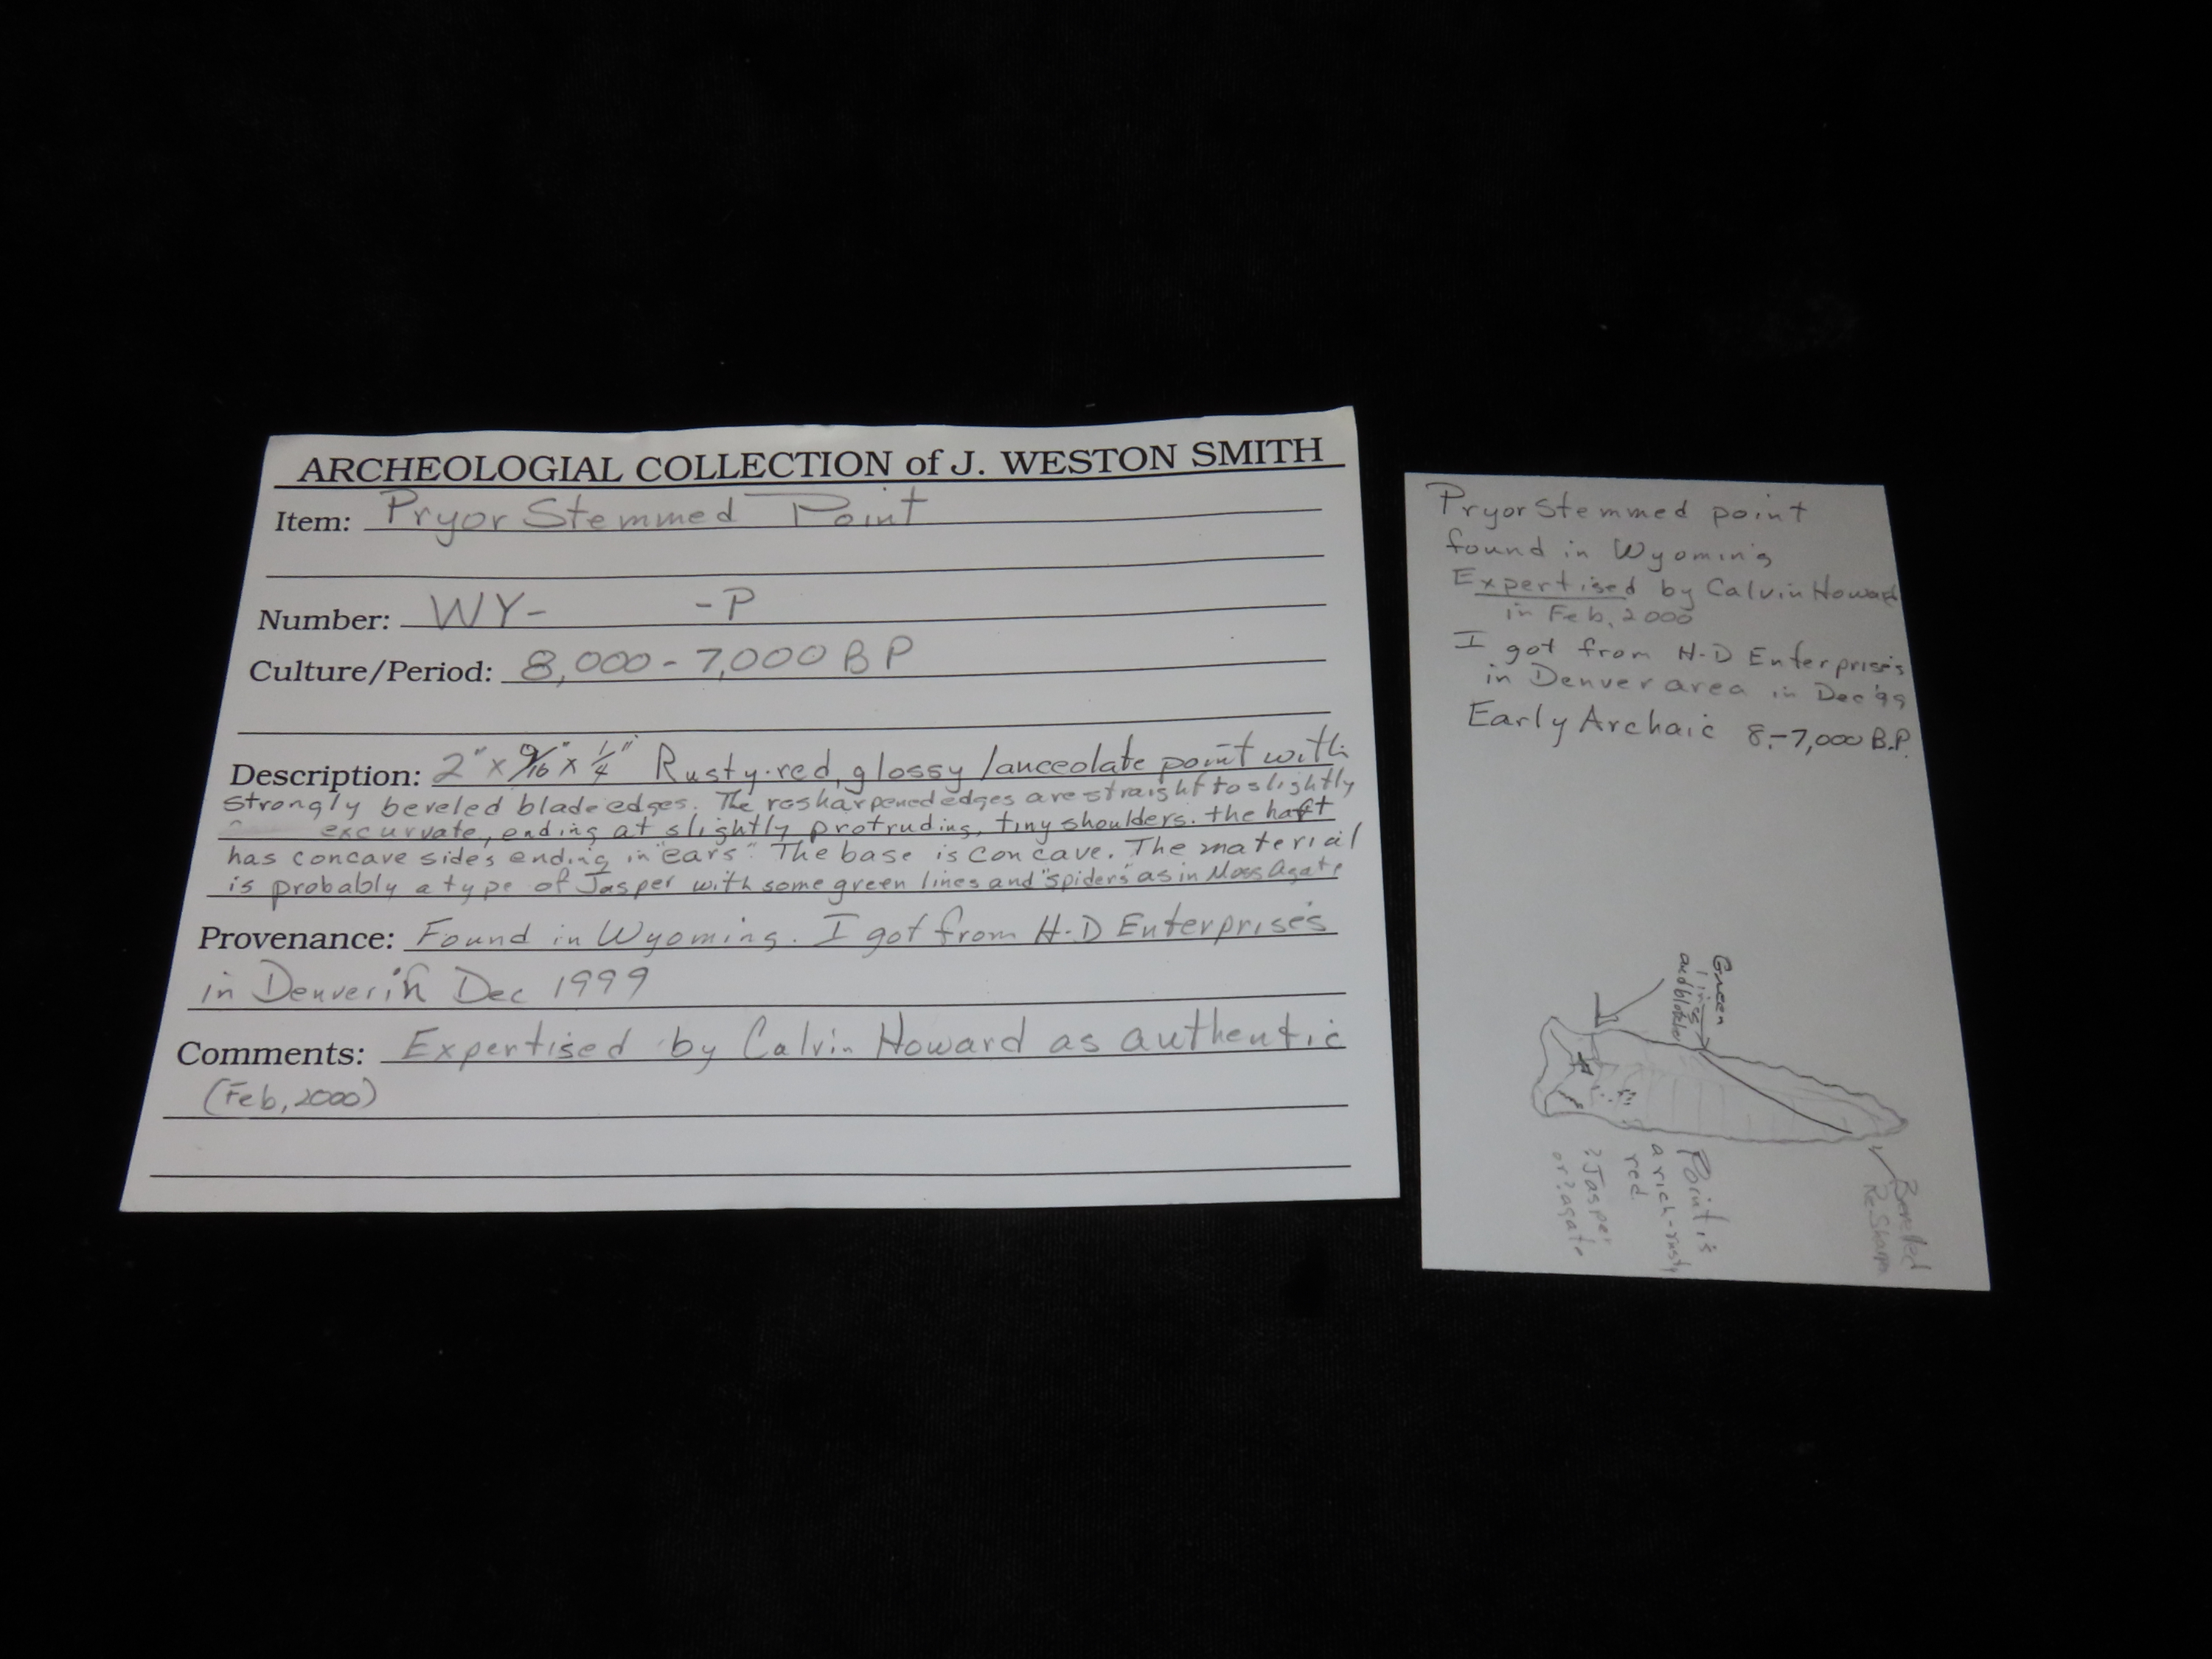 ARCHEOLOGIAL COLLECTION of J. WESTON SMITH
Item: Pryor Stemmed Point
Number: WY- -P
Culture/Period: 8,000-7,000 BP
Description: 2" x 9/16" x 1/4" Rusty-red, glossy lanceolate point with
strongly beveled blade edges. The resharpened edges are straight to slightly
excurvate, ending at slightly protruding, tiny shoulders. the haft
has concave sides ending in "ears". The base is concave. The material
is probably a type of Jasper with some green lines and "spiders" as in Moss Agate
Provenance: Found in Wyoming. I got from H-D Enterprises
in Denver in Dec 1999
Comments: Expertised by Calvin Howard as authentic
(Feb, 2000)
Pryor Stemmed point
found in Wyoming
Expertised by Calvin Howard
in Feb, 2000
I got from H-D Enterprises
in Denver area in Dec '99
Early Archaic 8,-7,000 B.P.
Green
lines
and
Point is
a rich-rusty
red
?Jasper
or?agate
Beveled
ReSharp